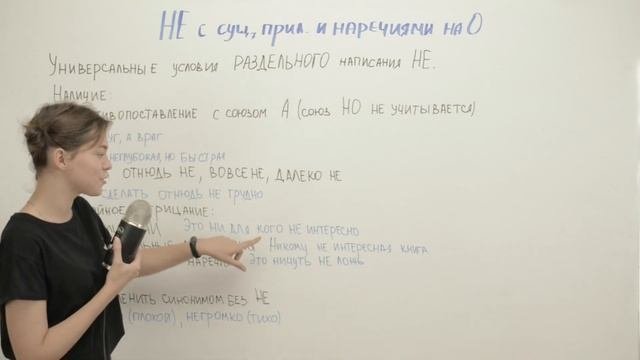 НЕ с сущ., прил. и наречиями на О
Универсальные условия РАЗДЕЛЬНОГО написания НЕ.
Наличие:
ивопоставление с союзом А (союз НО не учитывается)
уг, а враг
неглубокая, но быстрая
отнюдь не, вовсе не, далеко не
сделать отнюдь не трудно
йное отрицание:
Это ни для кого не интересно
Никому не интересная книга
нареч Это ничуть не ложь
енить синонимом без НЕ
(плохой), негромко (тихо)